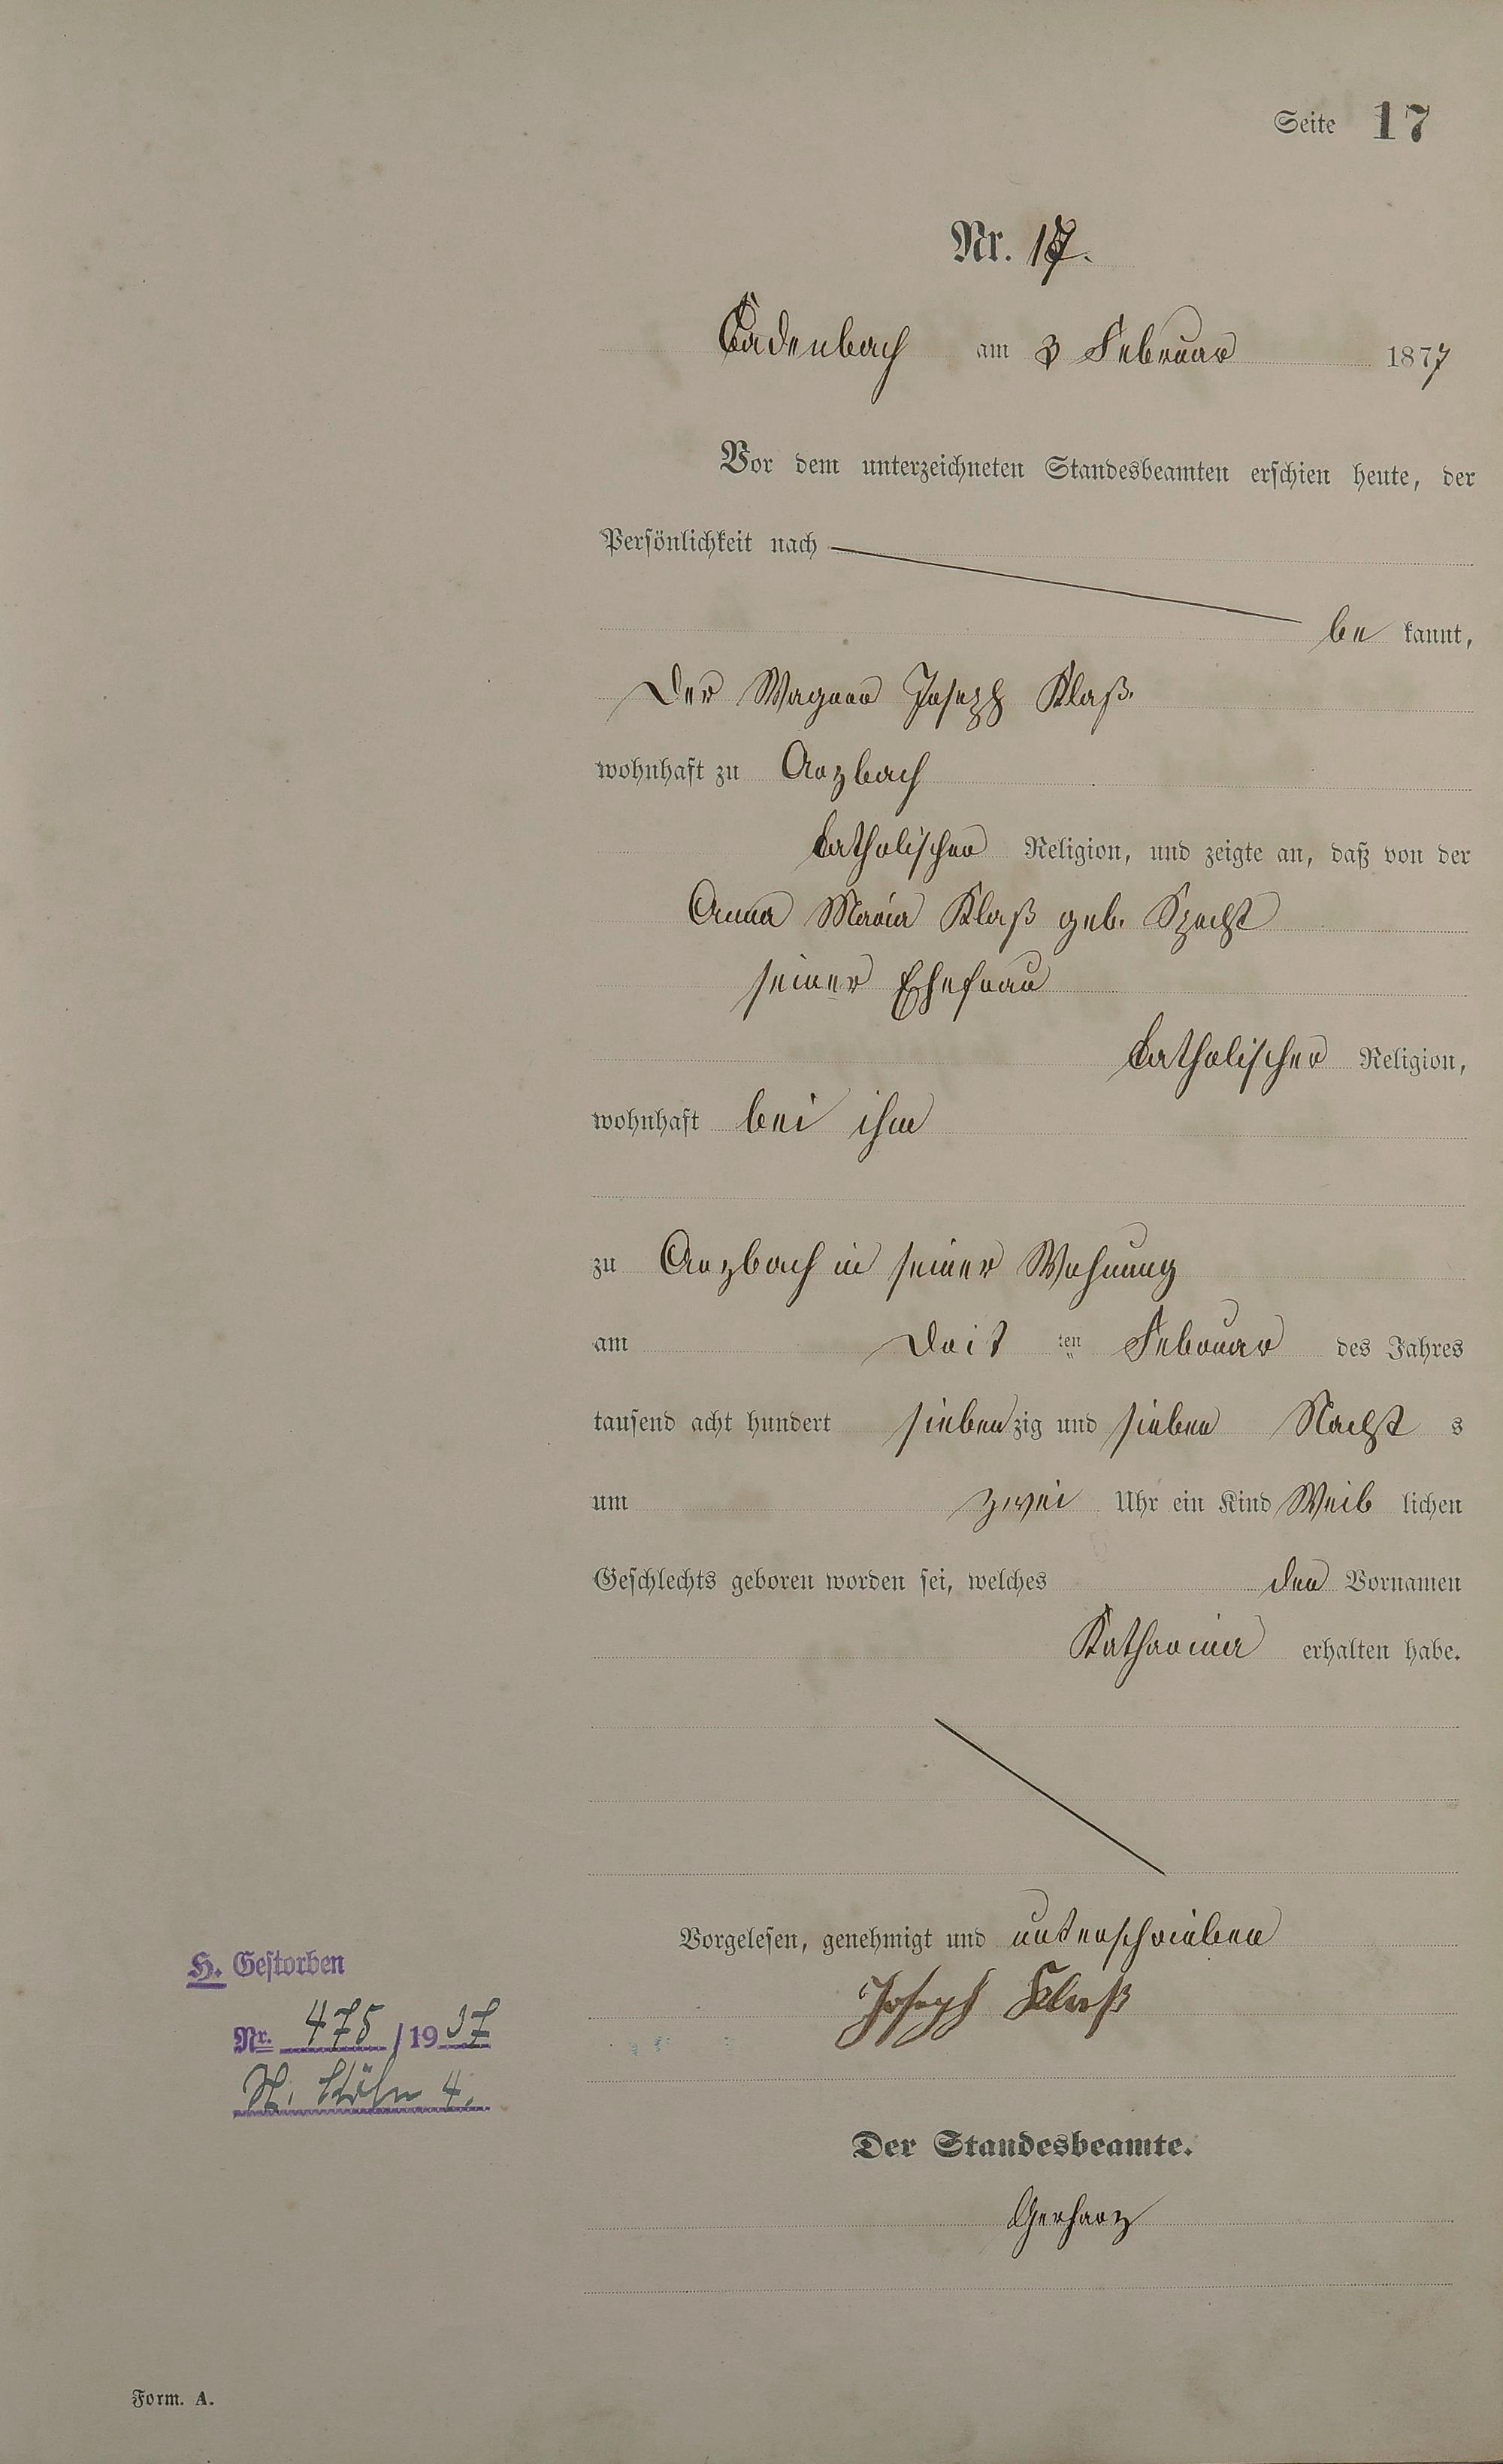 Seite 17
Nr. 17.
Cadenbach am 3 Februar 1877
Vor dem unterzeichneten Standesbeamten erschien heute, der
Persönlichkeit nach
be kannt,
Der Wagner Joseph Klaß
wohnhaft zu Arzbach
katholischer Religion, und zeigte an, daß von der
Anna Maria Klaß geb. Specht
seiner Ehefrau
katholischer Religion,
wohnhaft bei ihm
zu Arzbach in seiner Wohnung
am Drit ten Februar des Jahres
tausend acht hundert siebenzig und sieben Nacht s
um zwei Uhr ein Kind Weib lichen
Geschlechts geboren worden sei, welches den Vornamen
Katharina erhalten habe.
Vorgelesen, genehmigt und unterschrieben
Joseph Klaß
H. Gestorben
Nr. 475 / 1937
St. Köln 4.
Der Standesbeamte.
Gerharz
Form. A.